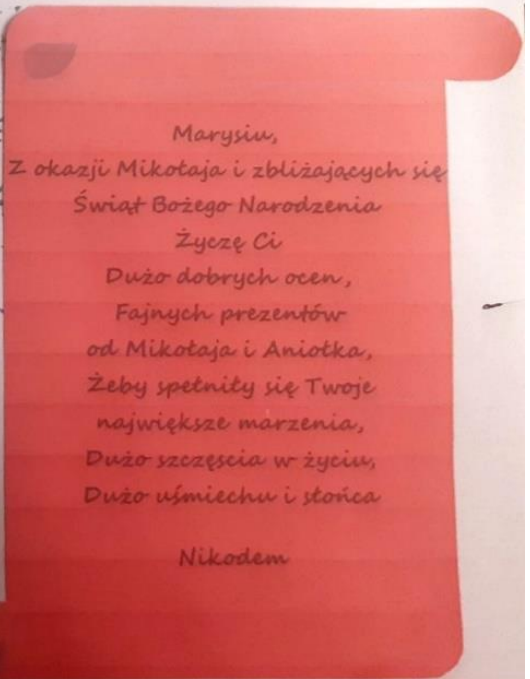 Marysiu,
Z okazji Mikołaja i zbliżających się
Świąt Bożego Narodzenia
Życzę Ci
Dużo dobrych ocen,
Fajnych prezentów
od Mikołaja i Aniołka,
Żeby spełniły się Twoje
największe marzenia,
Dużo szczęscia w życiu,
Dużo uśmiechu i słońca
Nikodem